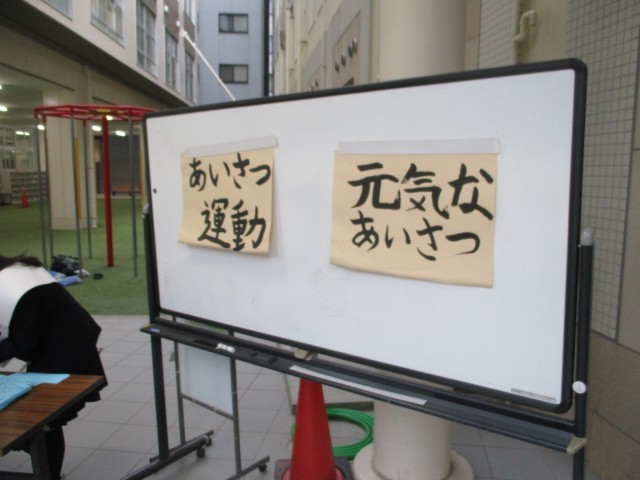 あいさつ
運動
元気な
あいさつ